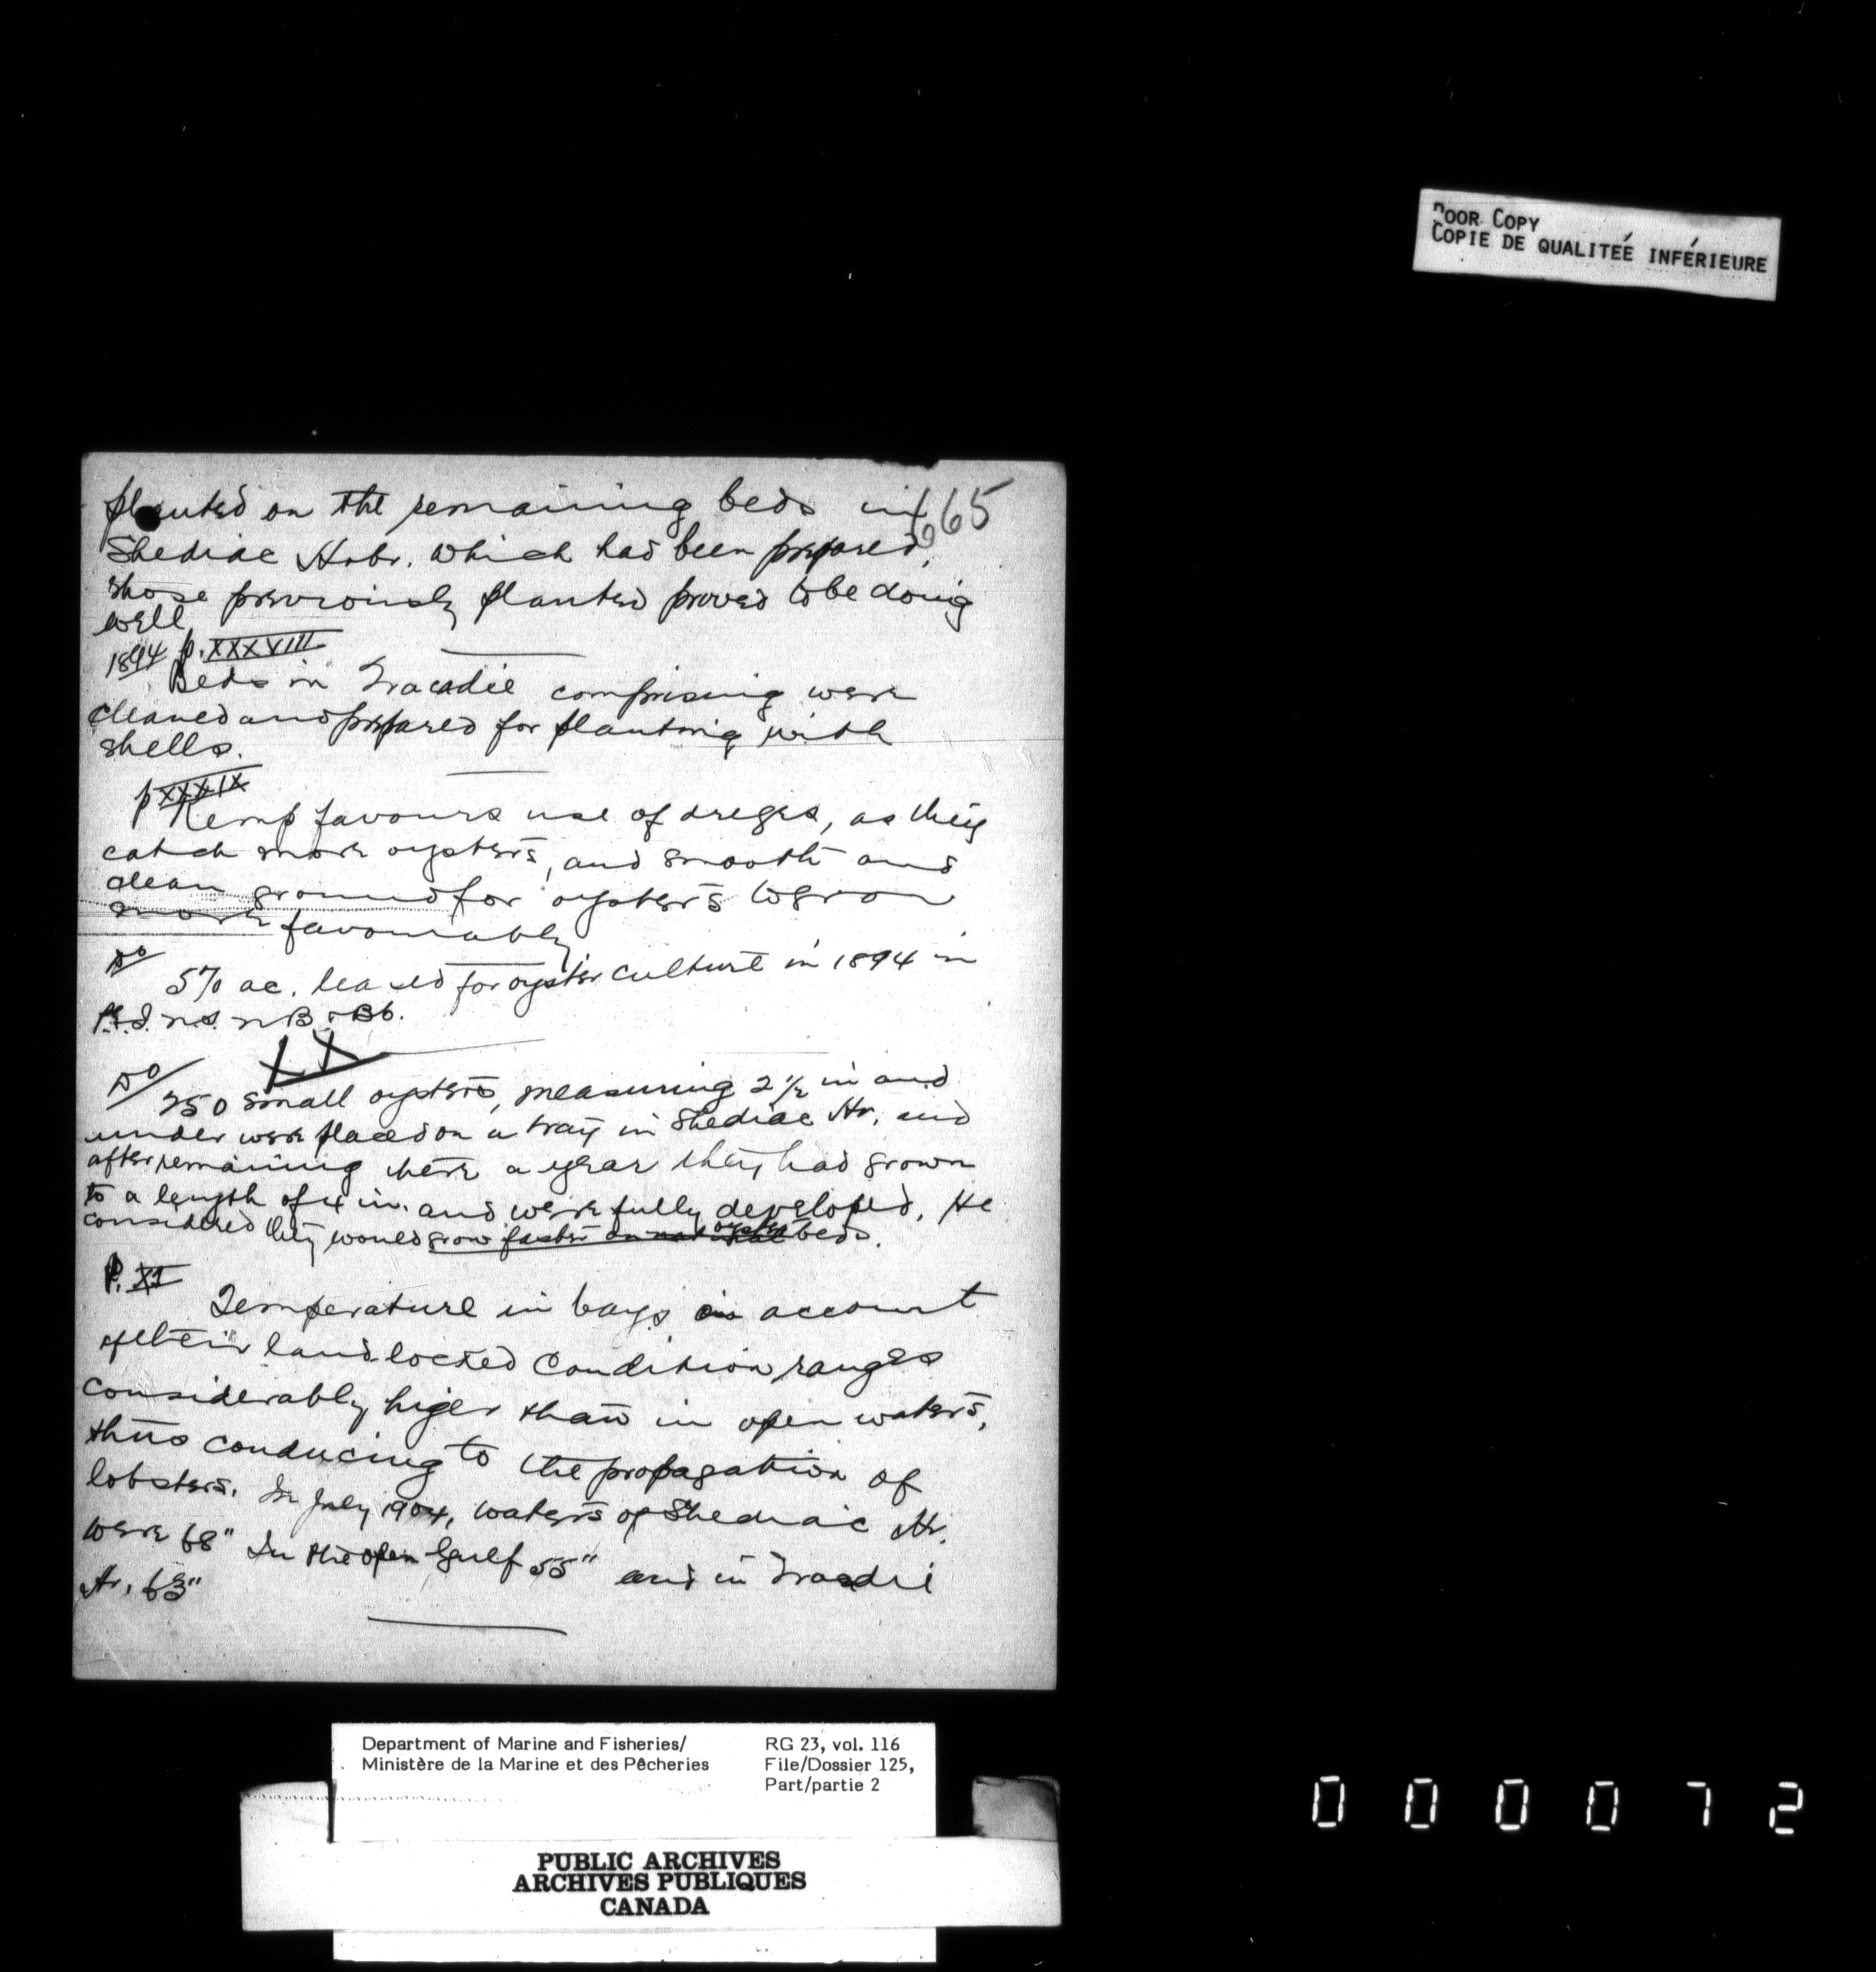 POOR COPY
COPIE DE QUALITEÉ INFÉRIEURE
665
planted on the remaining beds in
Shediac Hrbr. which had been prepared,
those previously planted proved to be doing
well
1894 p. XXXVIII
Beds in Tracadie comprising were
cleaned and prepared for planting with
shells.
p XXXIX
Kemp favours use of dreges, as they
catch more oysters, and smooth and
clean ground for oysters to grow
more favourably
Do
570 ac. leased for oyster culture in 1894 in
P.E.I. N.S. N B & B C.
Do
250 small oysters, measuring 2 1/2 in and
under were placed on a tray in Shediac Hr. and
after remaining there a year they had grown
to a length of 4 in. and were fully developed. He
considered they would grow faster on oyster beds.
P. XI
Temperature in bays on account
of their landlocked condition ranges
considerably higer than in open waters,
thus conducing to the propagation of
lobsters. In July 1904, waters of Shediac Hr.
were 68" In the open Gulf 55" and in Tracadie
Hr. 63"
Department of Marine and Fisheries/
Ministère de la Marine et des Pêcheries
RG 23, vol. 116
File/Dossier 125,
Part/partie 2
PUBLIC ARCHIVES
ARCHIVES PUBLIQUES
CANADA
000072